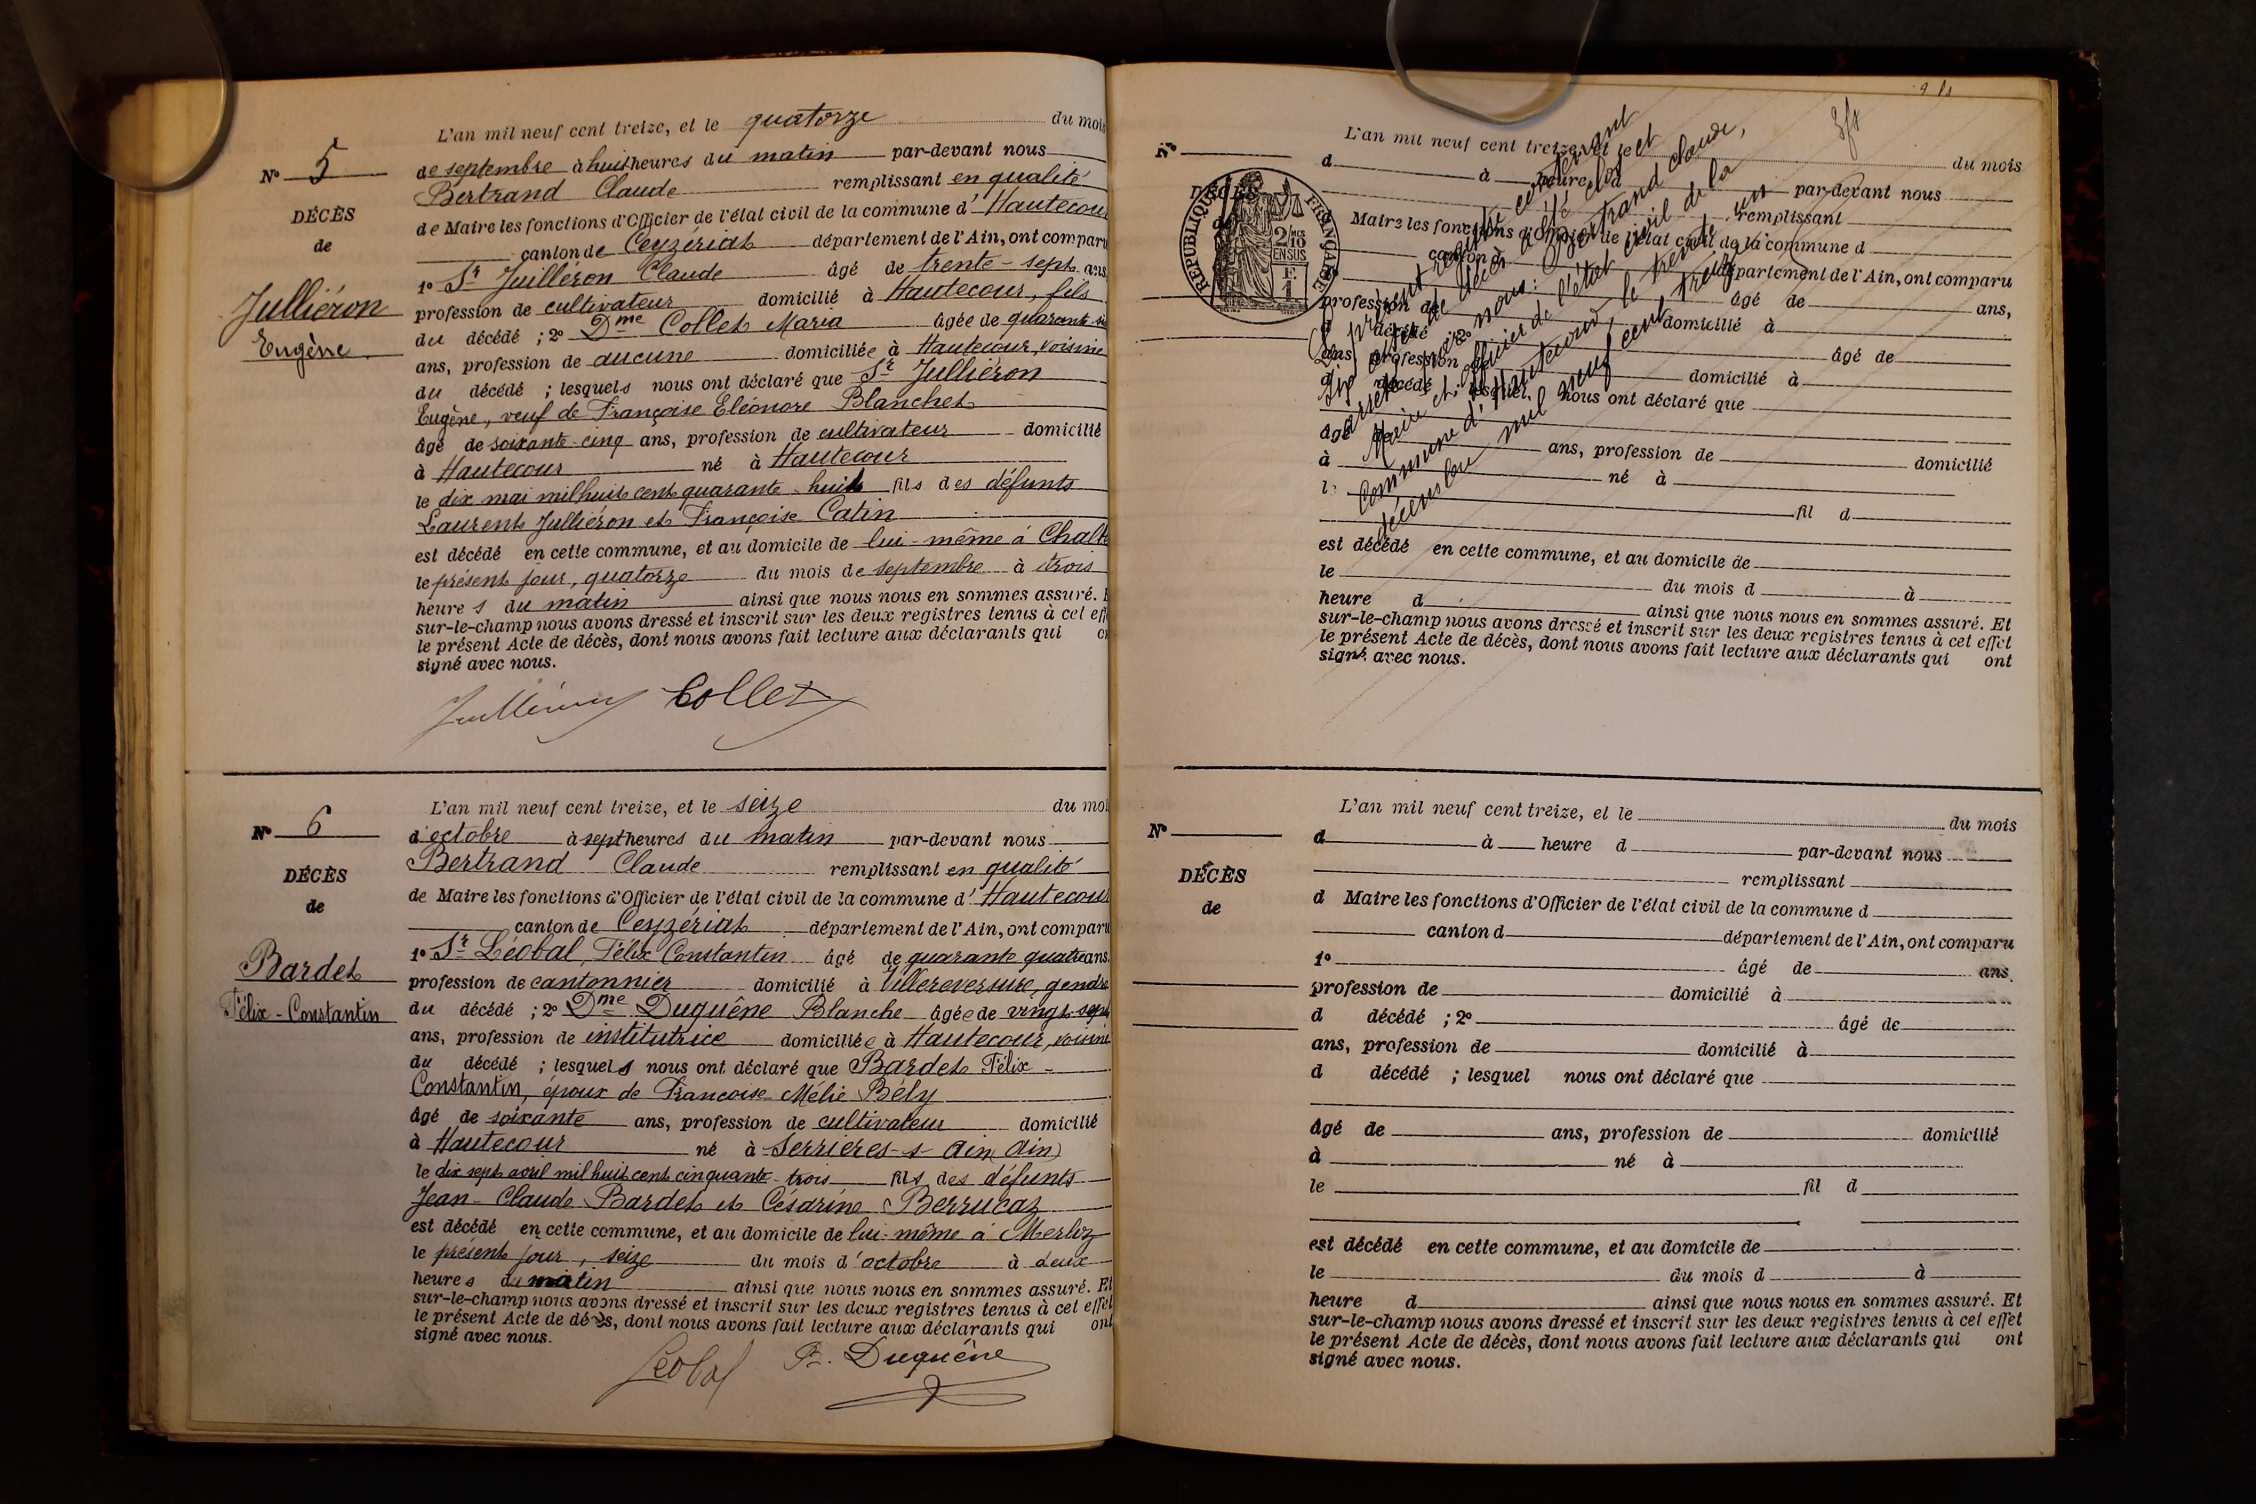 N° 5
DÉCÈS
de
Julliéron
Eugène
L'an mil neuf cent treize, et le quatorze du mois
de septembre à huit heures du matin par-devant nous
Bertrand Claude remplissant en qualité
de Maire les fonctions d'Officier de l'état civil de la commune d' Hautecour
canton de Ceyzériat département de l'Ain, ont comparu
1° Sr Juilléron Claude âgé de trente-sept ans
profession de cultivateur domicilié à Hautecour, fils
du décédé ; 2° Dme Collet Maria âgée de quarante
ans, profession de aucune domiciliée à Hautecour, voisine
du décédé ; lesquels nous ont déclaré que Sr Julliéron
Eugène, veuf de Françoise Eléonore Blanchet
âgé de soixante-cinq ans, profession de cultivateur domicilié
à Hautecour né à Hautecour
le dix mai mil huit cent quarante-huit fils des défunts
Laurent Julliéron et Françoise Catin
est décédé en cette commune, et au domicile de lui-même à
le présent jour, quatorze du mois de septembre à trois
heures du matin ainsi que nous nous en sommes assuré.
sur-le-champ nous avons dressé et inscrit sur les deux registres tenus à cet eff
le présent Acte de décès, dont nous avons fait lecture aux déclarants qui
signé avec nous.
Collet
N° 6
DÉCÈS
de
Bardet
Félix-Constantin
L'an mil neuf cent treize, et le seize du moi
d'octobre à sept heures du matin par-devant nous
Bertrand Claude remplissant en qualité
de Maire les fonctions d'Officier de l'état civil de la commune d' Hautecour
canton de Ceyzériat département de l'Ain, ont comparu
1° Sr Léobal Félix Constantin âgé de quarante quatre ans
profession de cantonnier domicilié à Villereversure, gendre
du décédé ; 2° Dme Duquêne Blanche âgée de vingt-sept
ans, profession de institutrice domiciliée à Hautecour, voisine
du décédé ; lesquels nous ont déclaré que Bardet Félix-
Constantin, époux de Françoise Mélie Bély
âgé de soixante ans, profession de cultivateur domicilié
à Hautecour né à Serrières-s-Ain (Ain)
le dix sept avril mil huit cent cinquante-trois fils des défunts
Jean-Claude Bardet et Césarine Berrucaz
est décédé en cette commune, et au domicile de lui-même à Merloz
le présent jour, seize du mois d'octobre à deux
heures du matin ainsi que nous nous en sommes assuré. Et
sur-le-champ nous avons dressé et inscrit sur les deux registres tenus à cet effet
le présent Acte de décès, dont nous avons fait lecture aux déclarants qui ont
signé avec nous.
Léobal Duquêne
N°
DÉCÈS
RÉPUBLIQUE FRANÇAISE
2/10 EN SUS
L'an mil neuf cent treize, et le du mois
d à heure d par-devant nous
remplissant
Maire les fonctions d'Officier de l'état civil de la commune d
canton d département de l'Ain, ont comparu
âgé de ans,
profession de domicilié à
d décédé ; 2° âgé de
ans, profession de domicilié à
d décédé ; lesquel nous ont déclaré que
âgé de ans, profession de domicilié
à né à
le fil d
est décédé en cette commune, et au domicile de
le du mois d à
heure d ainsi que nous nous en sommes assuré. Et
sur-le-champ nous avons dressé et inscrit sur les deux registres tenus à cet effet
le présent Acte de décès, dont nous avons fait lecture aux déclarants qui ont
signé avec nous.
Le présent registre contenant
six actes de décès a été clos et
arrêté par nous: Bertrand Claude,
Maire et officier de l'état civil de la
Commune d'Hautecour, le trente un
décembre mil neuf cent treize
N°
DÉCÈS
de
L'an mil neuf cent treize, et le du mois
d à heure d par-devant nous
remplissant
d Maire les fonctions d'Officier de l'état civil de la commune d
canton d département de l'Ain, ont comparu
1° âgé de ans
profession de domicilié à
d décédé ; 2° âgé de
ans, profession de domicilié à
d décédé ; lesquel nous ont déclaré que
âgé de ans, profession de domicilié
à né à
le fil d
est décédé en cette commune, et au domicile de
le du mois d à
heure d ainsi que nous nous en sommes assuré. Et
sur-le-champ nous avons dressé et inscrit sur les deux registres tenus à cet effet
le présent Acte de décès, dont nous avons fait lecture aux déclarants qui ont
signé avec nous.